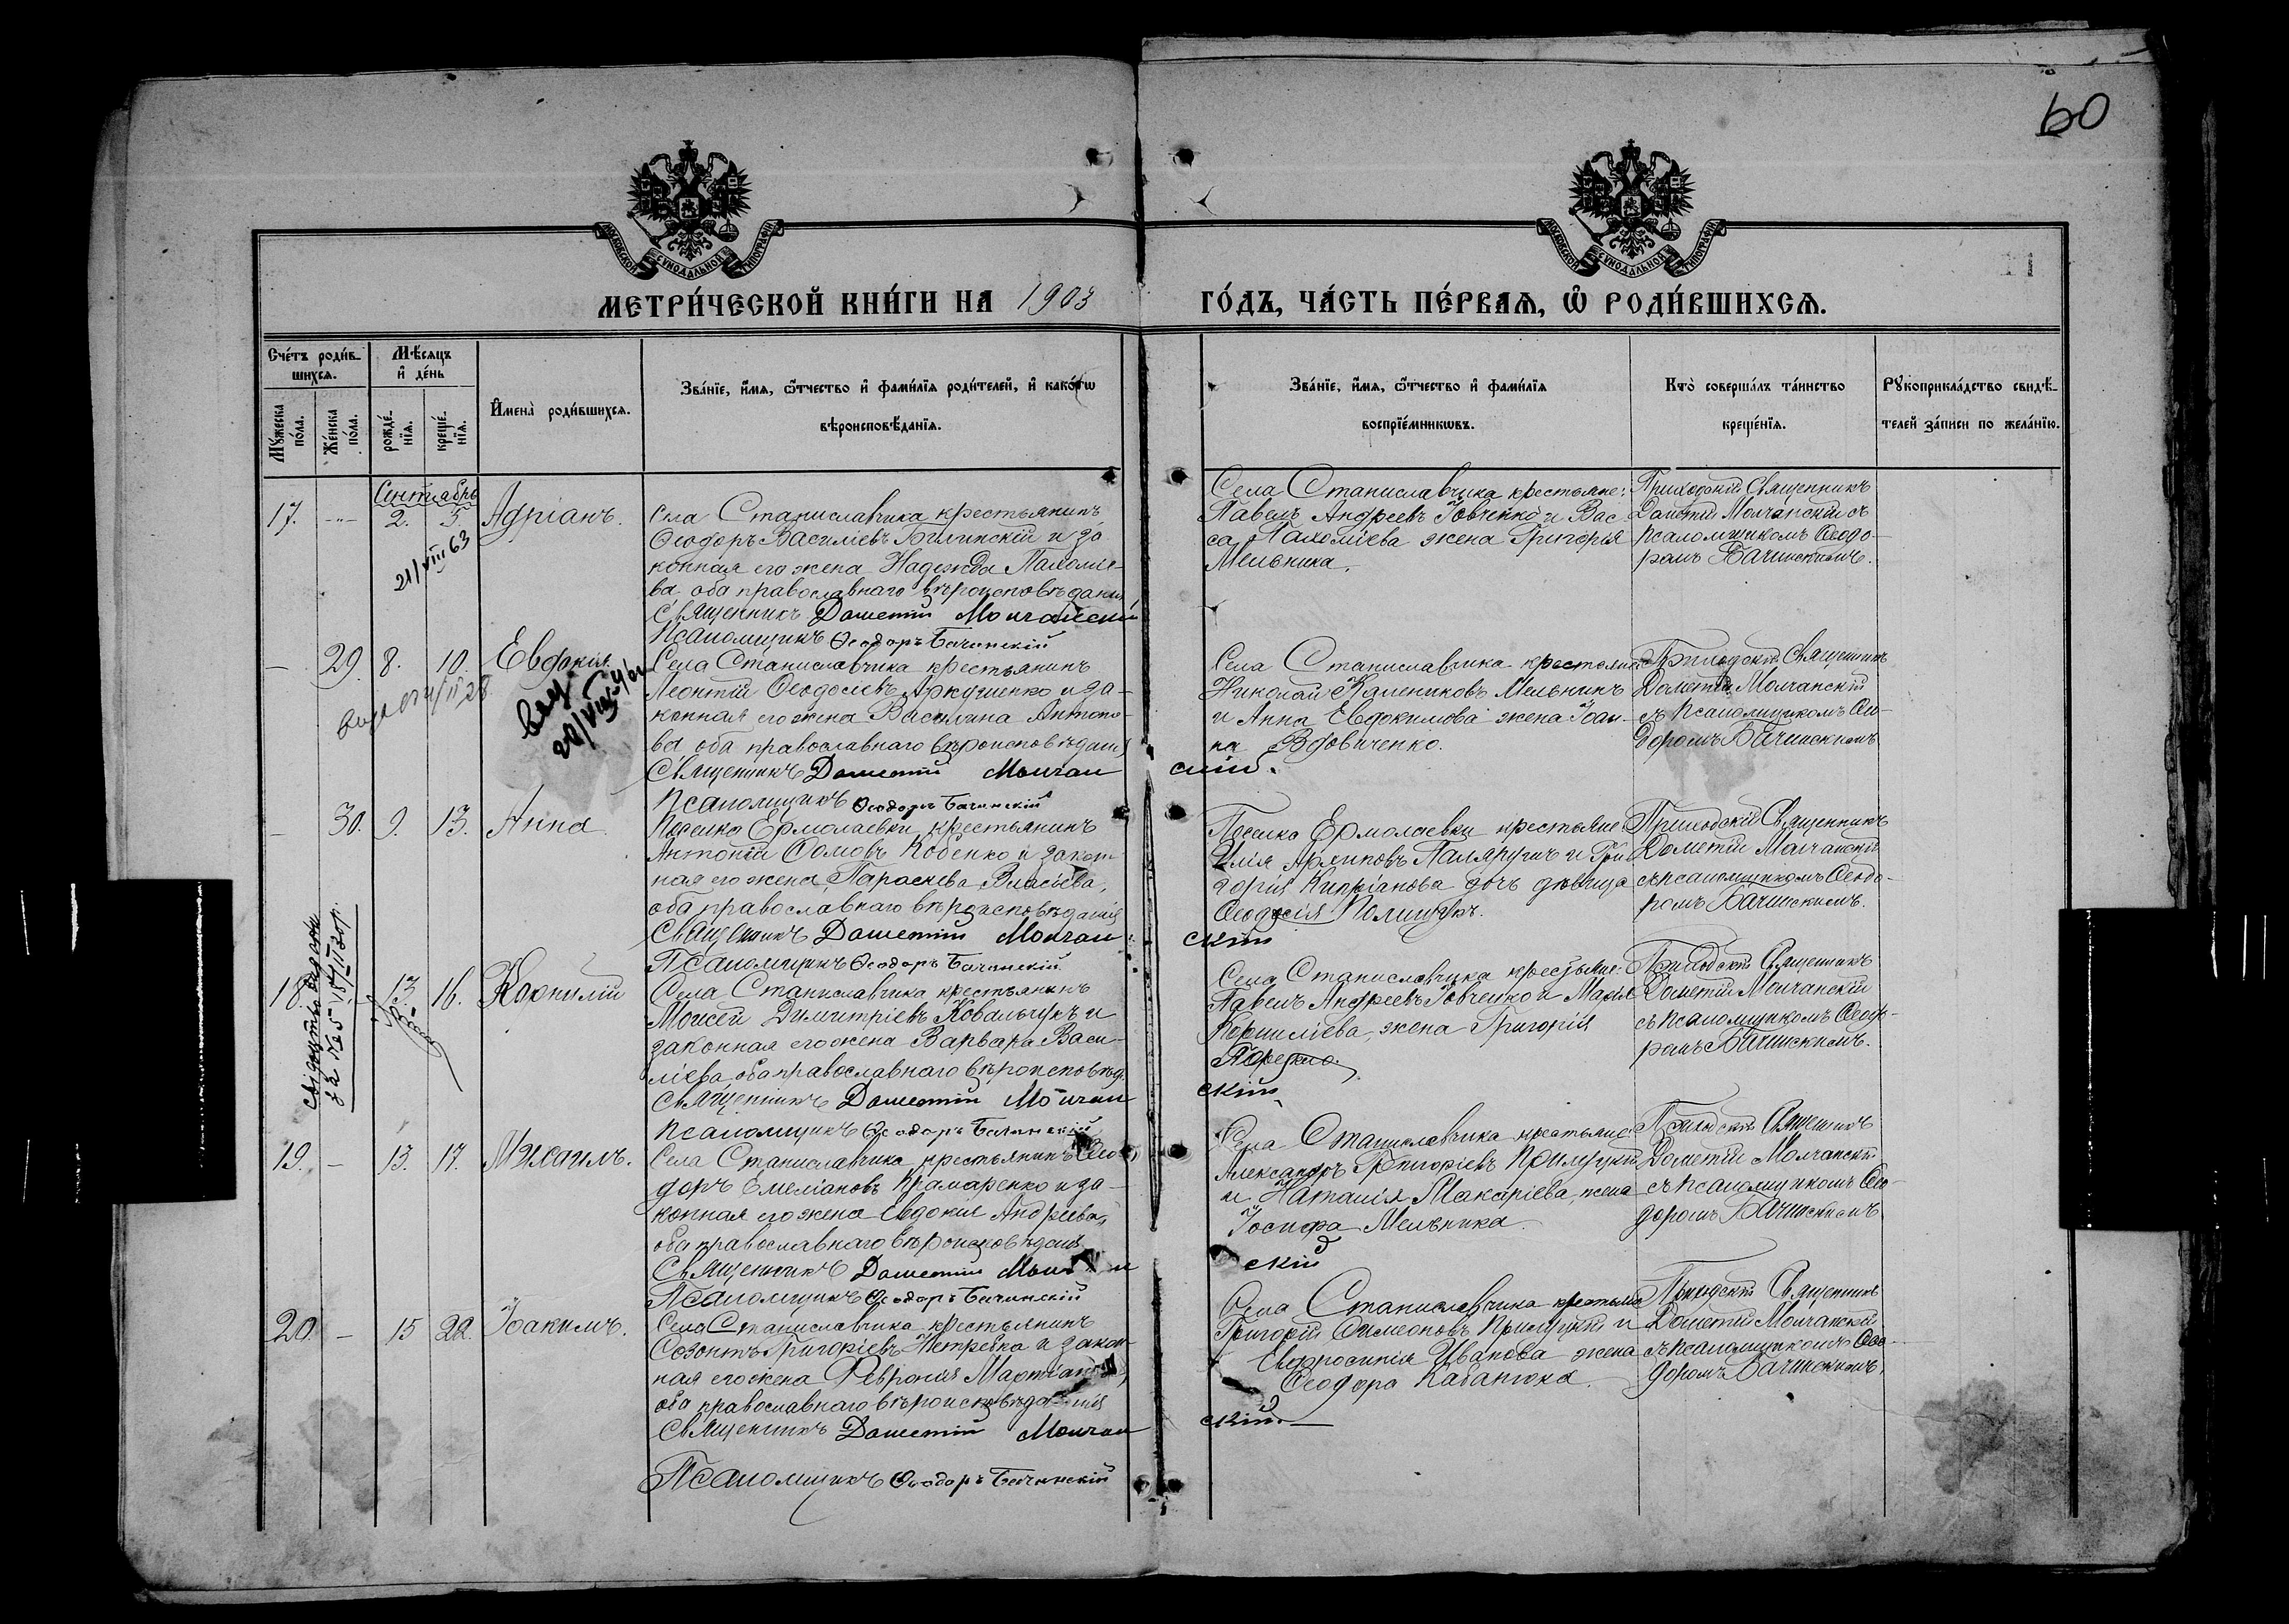 60
МОСКОВСКОЙ СУНОДАЛЬНОЙ ТИПОГРАФІИ
МОСКОВСКОЙ СУНОДАЛЬНОЙ ТИПОГРАФІИ
МЕТРИ́ЧЕСКОЙ КНИ́ГИ НА 1903 ГО́ДЪ, ЧА́СТЬ ПЕ́РВАѦ, Ѽ РОДИ́ВШИХСѦ.
Сче́тъ роди́в-
шихсѧ.
Мѣ́сѧцъ
и҆ де́нь
Мꙋ́жеска по́ла.
Же́нска по́ла.
рожде́-
нїѧ.
креще́-
нїѧ.
И҆мена̀ роди́вшихсѧ.
Зва́нїе, и҆́мѧ, ѻ҆́тчество и҆ фами́лїѧ роди́телей, и҆ како́гѡ
вѣроисповѣ́данїѧ.
Зва́нїе, и҆́мѧ, ѻ҆́тчество и҆ фами́лїѧ
воспрїе́мникѡвъ.
Кто̀ соверша́лъ та́инство
креще́нїѧ.
Рꙋкоприкла́дство свидѣ́-
телей за́писи по жела́нїю.
Сентябрь
17. -"- 2. 5. Адріанъ.
21/VIII 63
Села Станиславчика крестьянинъ
Ѳеодоръ Василіевъ Билинскій и за
конная его жена Надежда Пахоміе-
ва оба православнаго вѣроисповѣданія
Священникъ Дометій Молчанскій
Псаломщикъ Ѳеодоръ Бачинскій
Села Станиславчика крестьяне:
Павелъ Андреевъ Ровченко и Вас
са Пахоміева жена Григорія
Мельника.
Приходскій Священникъ
Дометій Молчанскій съ
псаломщикомъ Ѳеодо-
ромъ Бачинскимъ.
— 29. 8. 10. Евдокія
20/VIII
Села Станиславчика крестьянинъ
Леонтій Ѳеодосіевъ и за-
конная его жена Василина Антоніе-
ва оба православнаго вѣроисповѣданія
Священникъ Дометій Молчан
скій.
Псаломщикъ Ѳеодоръ Бачинскій
Села Станиславчика крестьяне
Николай Каленниковъ Мельникъ
и Анна Евдокимова жена Іоан-
на Вдовиченко.
Приходскій Священникъ
Дометій Молчанскій
съ псаломщикомъ Ѳео-
доромъ Бачинскимъ
— 30. 9. 13. Анна
Поселка Ермолаевки крестьянинъ
Антоній Ѳомовъ Кобенко и закон-
ная его жена Параскева Власіева,
оба православнаго вѣроисповѣданія
Священникъ Дометій Молчан-
скій
Псаломщикъ Ѳеодоръ Бачинскій
Поселка Ермолаевки крестьяне
Илія Архиповъ и Гри
горія Кипріанова дочь дѣвица
Ѳеодосія Полищукъ.
Приходскій Священникъ
Дометій Молчанскій
съ псаломщикомъ Ѳеодо-
ромъ Бачинскимъ.
18. 13. 16. Корнилій
за № 5
Села Станиславчика крестьянинъ
Моисей Димитріевъ Ковальчукъ и
законная его жена Варвара Васи-
ліева, оба православнаго вѣроисповѣд.
Священникъ Дометій Молчан
скій
Псаломщикъ Ѳеодоръ Бачинскій
Села Станиславчика крестьяне:
Павелъ Андреевъ Ровченко и Марія
Корниліева, жена Григорія
Приходскій Священникъ
Дометій Молчанскій
съ псаломщикомъ Ѳеодо-
ромъ Бачинскимъ.
19. — 13. 17. Михаилъ.
Села Станиславчика крестьянинъ Ѳео-
доръ Емеліановъ Крамаренко и за-
конная его жена Евдокія Андреева,
оба православнаго вѣроисповѣданія
Священникъ Дометій Молчан
скій
Псаломщикъ Ѳеодоръ Бачинскій
Села Станиславчика крестьяне
Александръ Григоріевъ Прилуцкій
и Наталія Макаріева, жена
Іосифа Мельника.
Приходскій Священникъ
Дометій Молчанскій
съ псаломщикомъ Ѳео-
доромъ Бачинскимъ.
20. — 15 22. Іоакимъ.
Села Станиславчика крестьянинъ
Созонтъ Григоріевъ Нетребка и закон-
ная его жена Февронія Мартіанова,
оба православнаго вѣроисповѣданія
Священникъ Дометій Молчан
скій.
Псаломщикъ Ѳеодоръ Бачинскій
Села Станиславчика крестьяне
Григорій Симеоновъ Прилуцкій и
Евфросинія Иванова жена
Ѳеодора Кабанюка.
Приходскій Священникъ
Дометій Молчанскій
съ псаломщикомъ Ѳео-
доромъ Бачинскимъ.